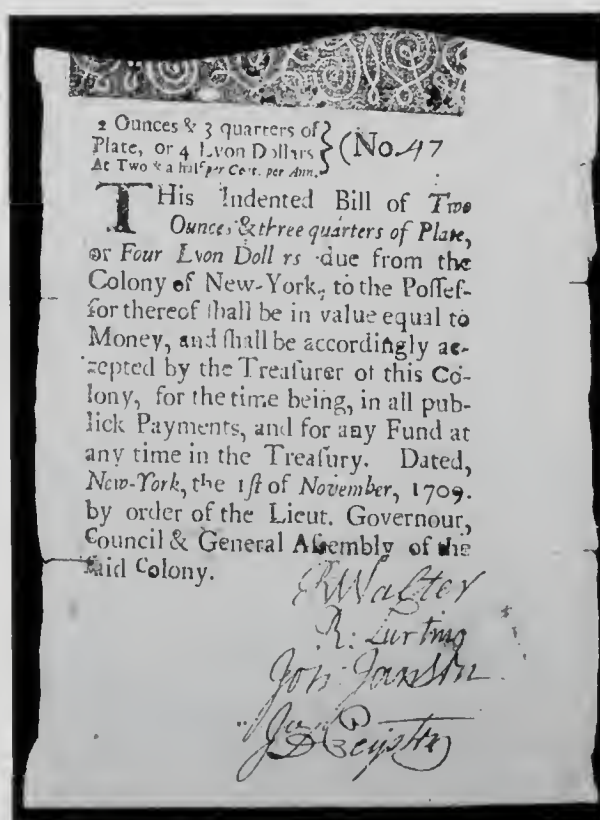 2 Ounces & 3 quarters of
Plate, or 4 Lyon Dollars
At Two & a half per Cent. per Ann.
} (No. 47
THis Indented Bill of Two
Ounces & three quarters of Plate,
or Four Lyon Doll rs due from the
Colony of New-York, to the Poſſeſ-
ſor thereof ſhall be in value equal to
Money, and ſhall be accordingly ac-
cepted by the Treaſurer of this Co-
lony, for the time being, in all pub-
lick Payments, and for any Fund at
any time in the Treaſury. Dated,
New-York, the 1ſt of November, 1709.
by order of the Lieut. Governour,
Council & General Aſſembly of the
ſaid Colony.
R Walter
R: Lurting
Joh Janson